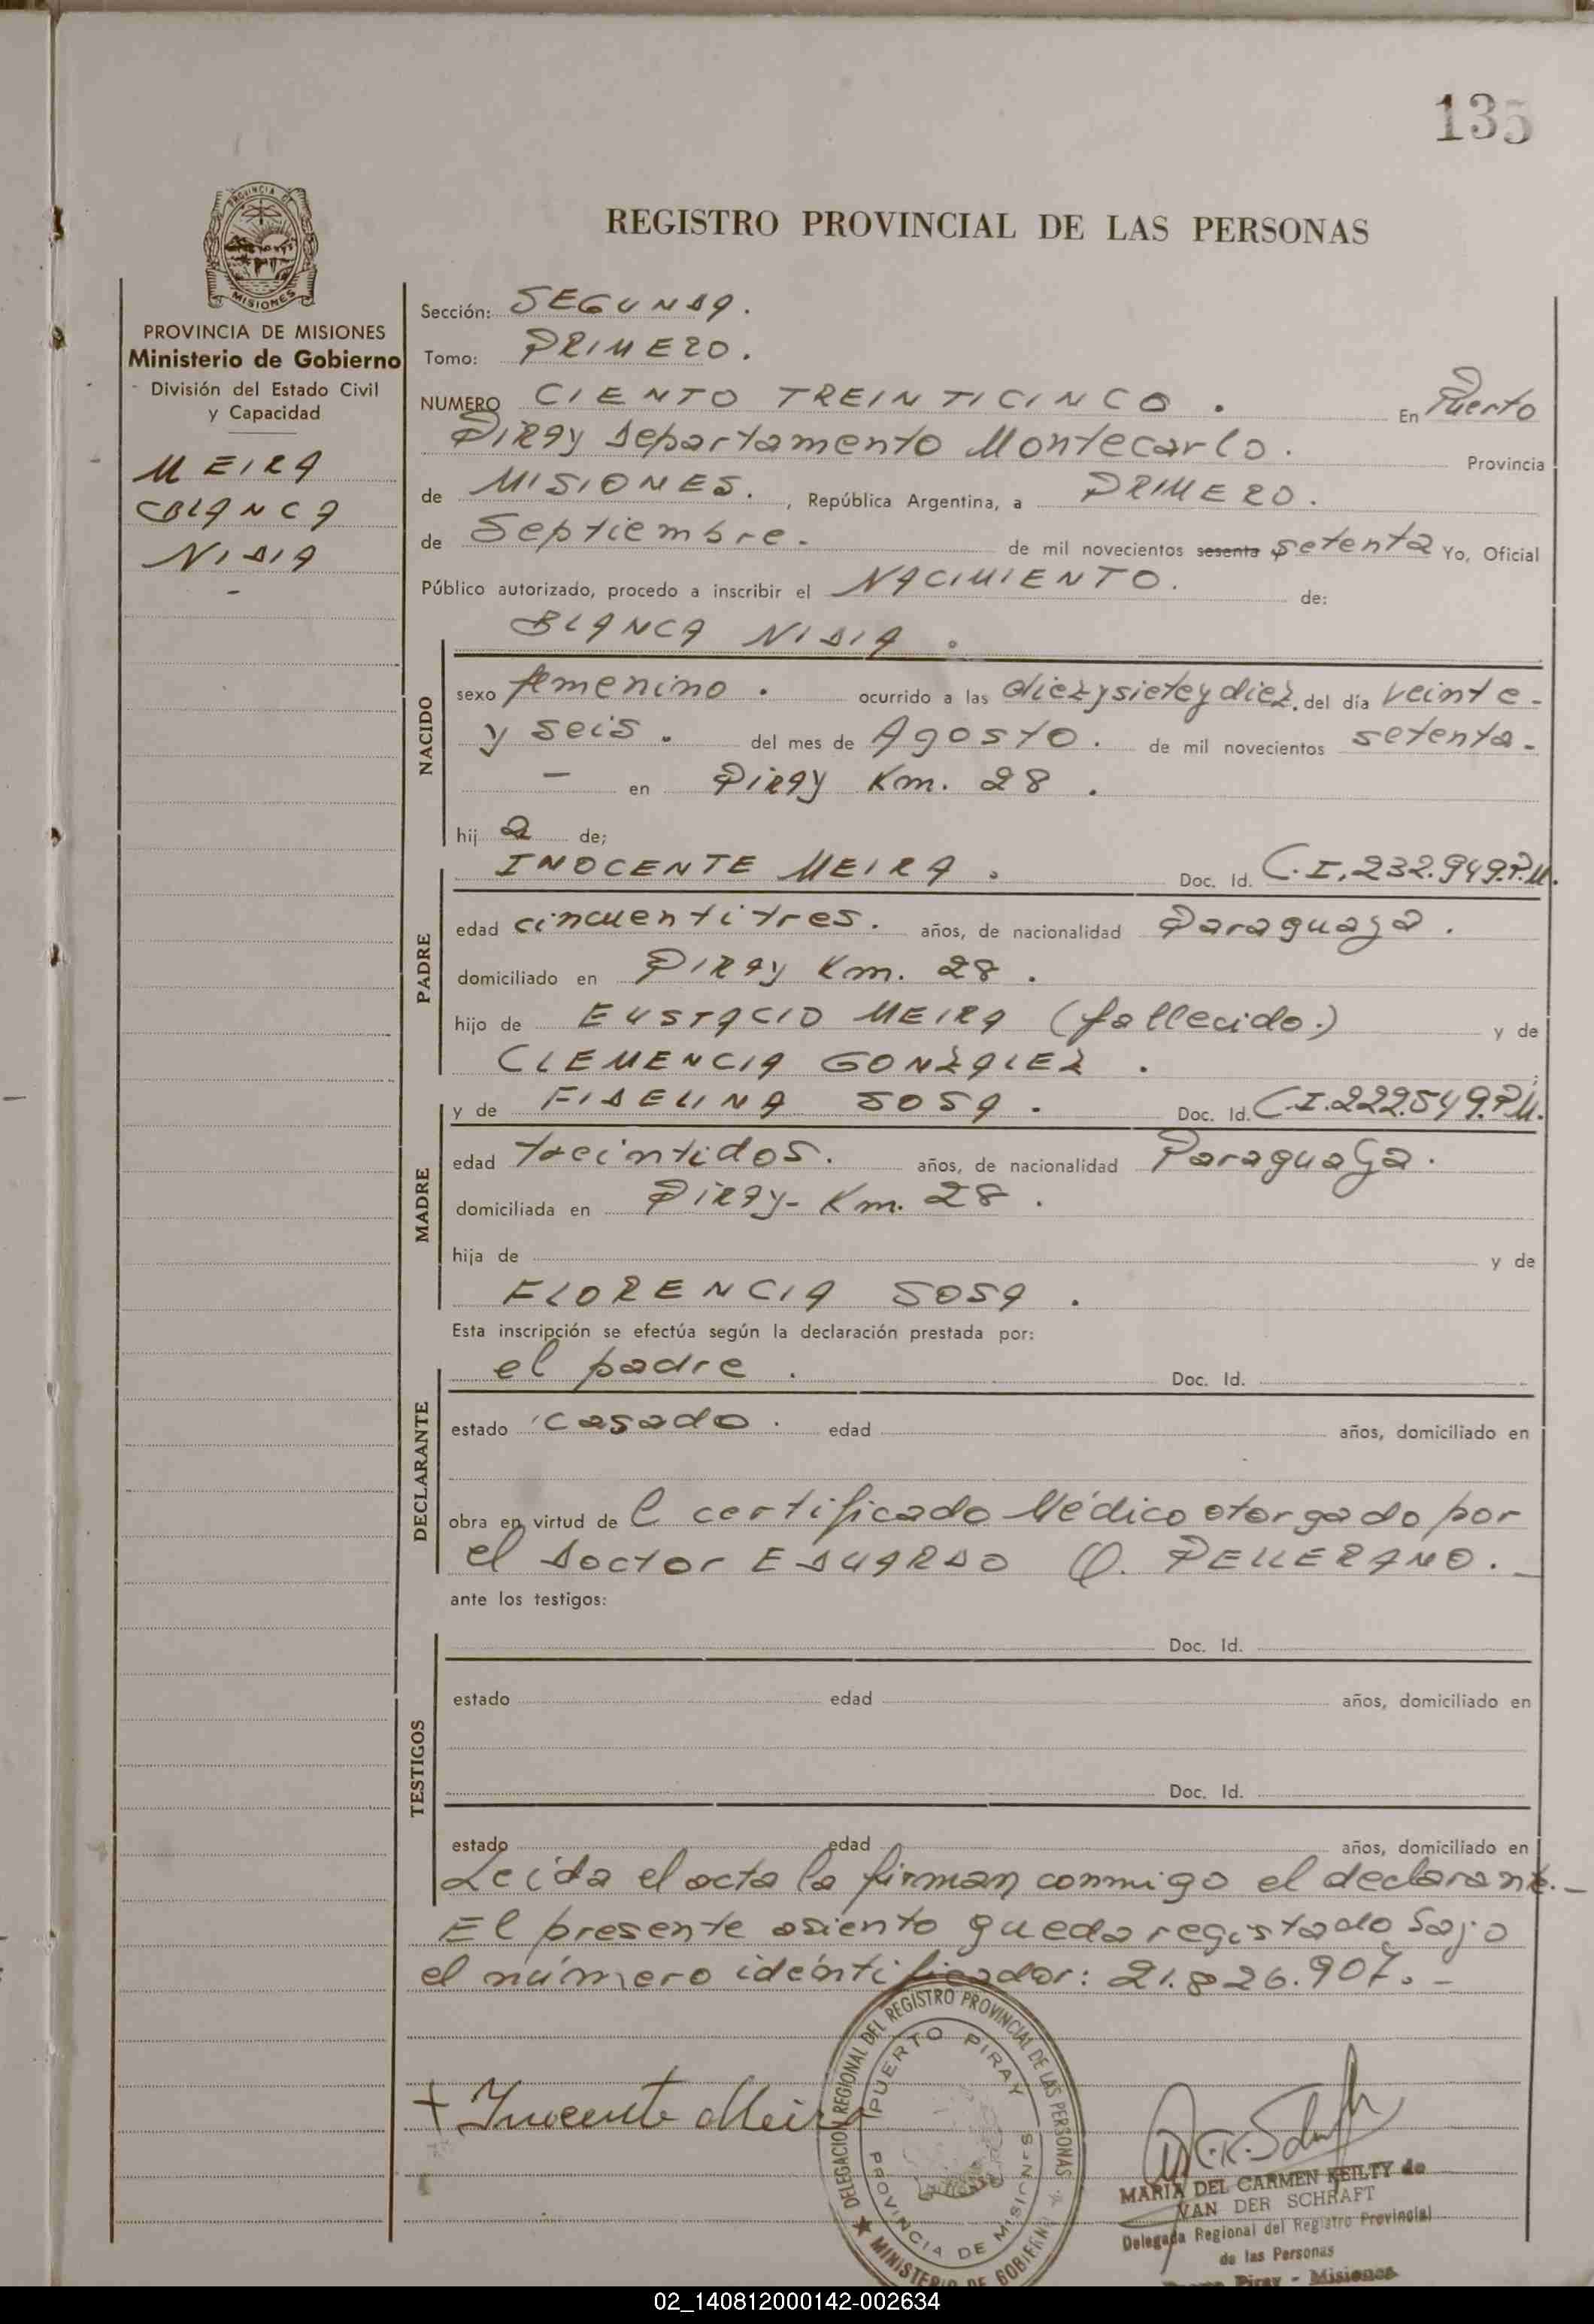 135
REGISTRO PROVINCIAL DE LAS PERSONAS
MISIONES
PROVINCIA DE MISIONES
Ministerio de Gobierno
División del Estado Civil
y Capacidad
MEIRA
BLANCA
NIDIA
-
Sección: SEGUNDA.
Tomo: PRIMERO.
NUMERO CIENTO TREINTICINCO. En Puerto
PIRAY Departamento Montecarlo. Provincia
de MISIONES. , República Argentina, a PRIMERO.
de Septiembre. de mil novecientos sesenta setenta Yo, Oficial
Público autorizado, procedo a inscribir el NACIMIENTO. de:
BLANCA NIDIA.
NACIDO
sexo femenino. ocurrido a las diezysieteydiez. del día veinte-
y seis. del mes de Agosto. de mil novecientos setenta-
- en Piray Km. 28.
hij a de;
INOCENTE MEIRA. Doc. Id. C.I.232.949.P.M.
PADRE
edad cincuentitres. años, de nacionalidad Paraguaya.
domiciliado en PIRAY Km. 28.
hijo de EUSTACIO MEIRA (fallecido.) y de
CLEMENCIA GONZALEZ.
y de FIDELINA SOSA. Doc. Id. C.I.222.549.P.M.
MADRE
edad treintidos. años, de nacionalidad Paraguaya.
domiciliada en PIRAY- Km. 28.
hija de y de
FLORENCIA SOSA.
Esta inscripción se efectúa según la declaración prestada por:
el padre. Doc. Id.
DECLARANTE
estado casado. edad años, domiciliado en
obra en virtud de l certificado Médico otorgado por
el Doctor EDUARDO Q. PELLERANO.-
ante los testigos:
Doc. Id.
TESTIGOS
estado edad años, domiciliado en
Doc. Id.
estado edad años, domiciliado en
Leída el acta la firman conmigo el declarante.-
El presente asiento queda registado bajo
el número idéntificador: 21.826.907.-
+ Inocente Meira
DELEGACION REGIONAL DEL REGISTRO PROVINCIAL DE LAS PERSONAS
MINISTERIO DE GOBIERNO
PUERTO PIRAY
PROVINCIA DE MISIONES
MARIA DEL CARMEN KEILTY de
VAN DER SCHRAFT
Delegada Regional del Registro Provincial
de las Personas
Piray - Misiones
02_140812000142-002634